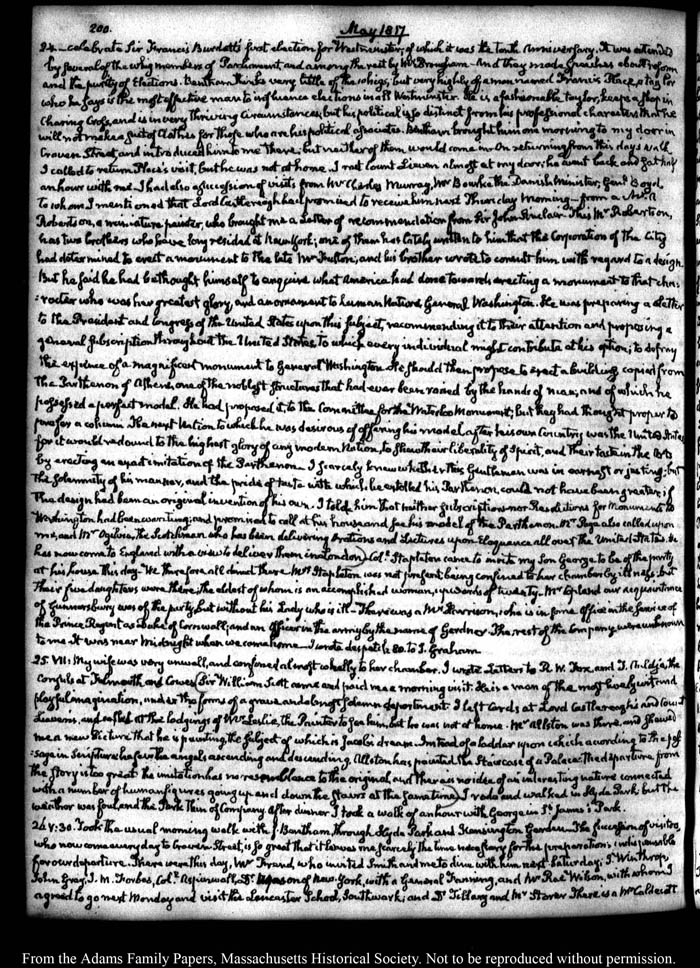 200.
May 1817
24— celebrate Sir Francis Burdett's first election for Westminster, of which it was the tenth Anniversary. It was attended
by several of the whig members of Parliament, and among the rest by Mr Brougham. And they made speeches about reform
and the purity of Elections. Bentham thinks very little of the whigs, but very highly of a man named Francis Place, a taylor
who he says is the most effective man to influence elections in all Westminster. He is a fashionable taylor, keeps a shop in
Charing Cross, and is in very thriving Circumstances, but his political is so distinct from his professional character that he
will not make a suit of Clothes for those who are his political associates. Bentham brought him one morning to my door in
Craven Street, and introduced him to me there; but neither of them would come in. On returning from this day's walk
I called to return Place's visit, but he was not at home. I met Count Lieven almost at my door; he went back and sat half
an hour with me. I had also a succession of visits from Mr Charles Murray, Mr Bourke the Danish Minister, Genl Boyd
to whom I mentioned that Lord Castlereagh had promised to receive him next Thursday Morning— from a Mr A
Robertson, a miniature painter, who brought me a Letter of recommendation from Sir John Sinclair. This Mr Robertson,
has two brothers who have long resided at New York; one of them has lately written to him that the Corporation of the City
had determined to erect a monument to the late Mr Fulton, and his brother wrote to consult him with regard to a design.
But he said he had bethought himself to enquire what America had done towards erecting a monument to that cha-
:racter who was her greatest glory, and an ornament to human Nature, General Washington. He was preparing a letter
to the President and Congress of the United States upon this subject, recommending it to their attention and proposing a
general subscription throughout the United States, to which every individual might contribute at his option; to defray
the expence of a magnificent monument to General Washington. He should then propose to erect a building copied from
the Parthenon of Athens, one of the noblest structures that had ever been raised by the hands of man; and of which he
possessed a perfect model. He had proposed it, to the Committee for the Waterloo Monument; but they had thought proper to
prefer a column. The next Nation to which he was desirous of offering his model after his own Country was the United States
for it would redound to the highest glory of any modern Nation, to show their liberality of Spirit, and their taste in the Arts
by erecting an exact imitation of the Parthenon— I scarcely knew whether this Gentleman was in earnest or jesting; but
the solemnity of his manner, and the pride of taste with which he extolled his Parthenon, could not have been greater; if
the design had been an original invention of his own. I told him that neither subscriptions nor Resolutions for Monuments to
Washington had been wanting; and promised to call at his house and see his model of the Parthenon. Mr Pega also called upon
me, and Mr Ogilvie, the Scotchman who has been delivering Orations and Lectures upon Eloquence all over the United States. He
has now come to England with a view to deliver them in London. Col. Stapleton came to invite my Son George to be of the party
at his house this day. We therefore all dined there. Mrs Stapleton was not present being confined to her chamber by illness; but
their five daughters were there, the eldest of whom is an accomplished woman, upwards of twenty. Mr Copland our acquaintance
of Gunnersbury was of the party, but without his Lady who is ill— There was a Mr Harrison, who is in some office in the service of
the Prince Regent as Duke of Cornwall; and an Officer in the army by the name of Gardner. The rest of the Company were unknown
to me. It was near Midnight when we came home— I wrote despatch 80. to J. Graham.
25. VII: My wife was very unwell, and confined almost wholly to her chamber. I wrote Letters to R. W. Fox, and T. Auldjo, the
Consuls at Falmouth and Cowes. Sir William Scott came and paid me a morning visit. He is a man of the most lively wit and
playful imagination, under the forms of a grave and almost solemn deportment. I left Cards at Lord Castlereagh's and Count
Lieven's, and called at the lodgings of Mr Leslie, the Painter to see him, but he was not at home. Mr Allston was there, and showed
me a new Picture that he is painting, the subject of which is Jacob's dream. Instead of a ladder upon which according to the pas-
:sage in Scripture he saw the angels ascending and descending, Allston has painted the Staircase of a Palace. The departure from
the story is too great: the imitation has no resemblance to the original, and there is no idea of an interesting nature connected
with a number of human figures going up and down the Stairs at the same time. I rode and walked in Hyde Park but the
weather was foul, and the Park thin of Company. After dinner I took a walk of an hour with George in St James's Park.
26. V:30. Took the usual morning walk with J. Bentham, through Hyde Park and Kensington Garden— The succession of visitors,
who now come every day to Craven Street, is so great that it leaves me scarcely the time necessary for the preparations indispensable
for our departure. There were this day, Mr Freund, who invited Smith and me to dine with him next Saturday; T. Winthrop,
John Gray, J. M. Forbes, Col. Aspinwall, Dr Mason of New York, with a General Fenning, and Mr Rae Wilson, with whom I
agreed to go next Monday and visit the Lancaster School, Southwark; and Dr Tillary and Mr Storer. There is a Mr Caldecott
From the Adams Family Papers, Massachusetts Historical Society. Not to be reproduced without permission.